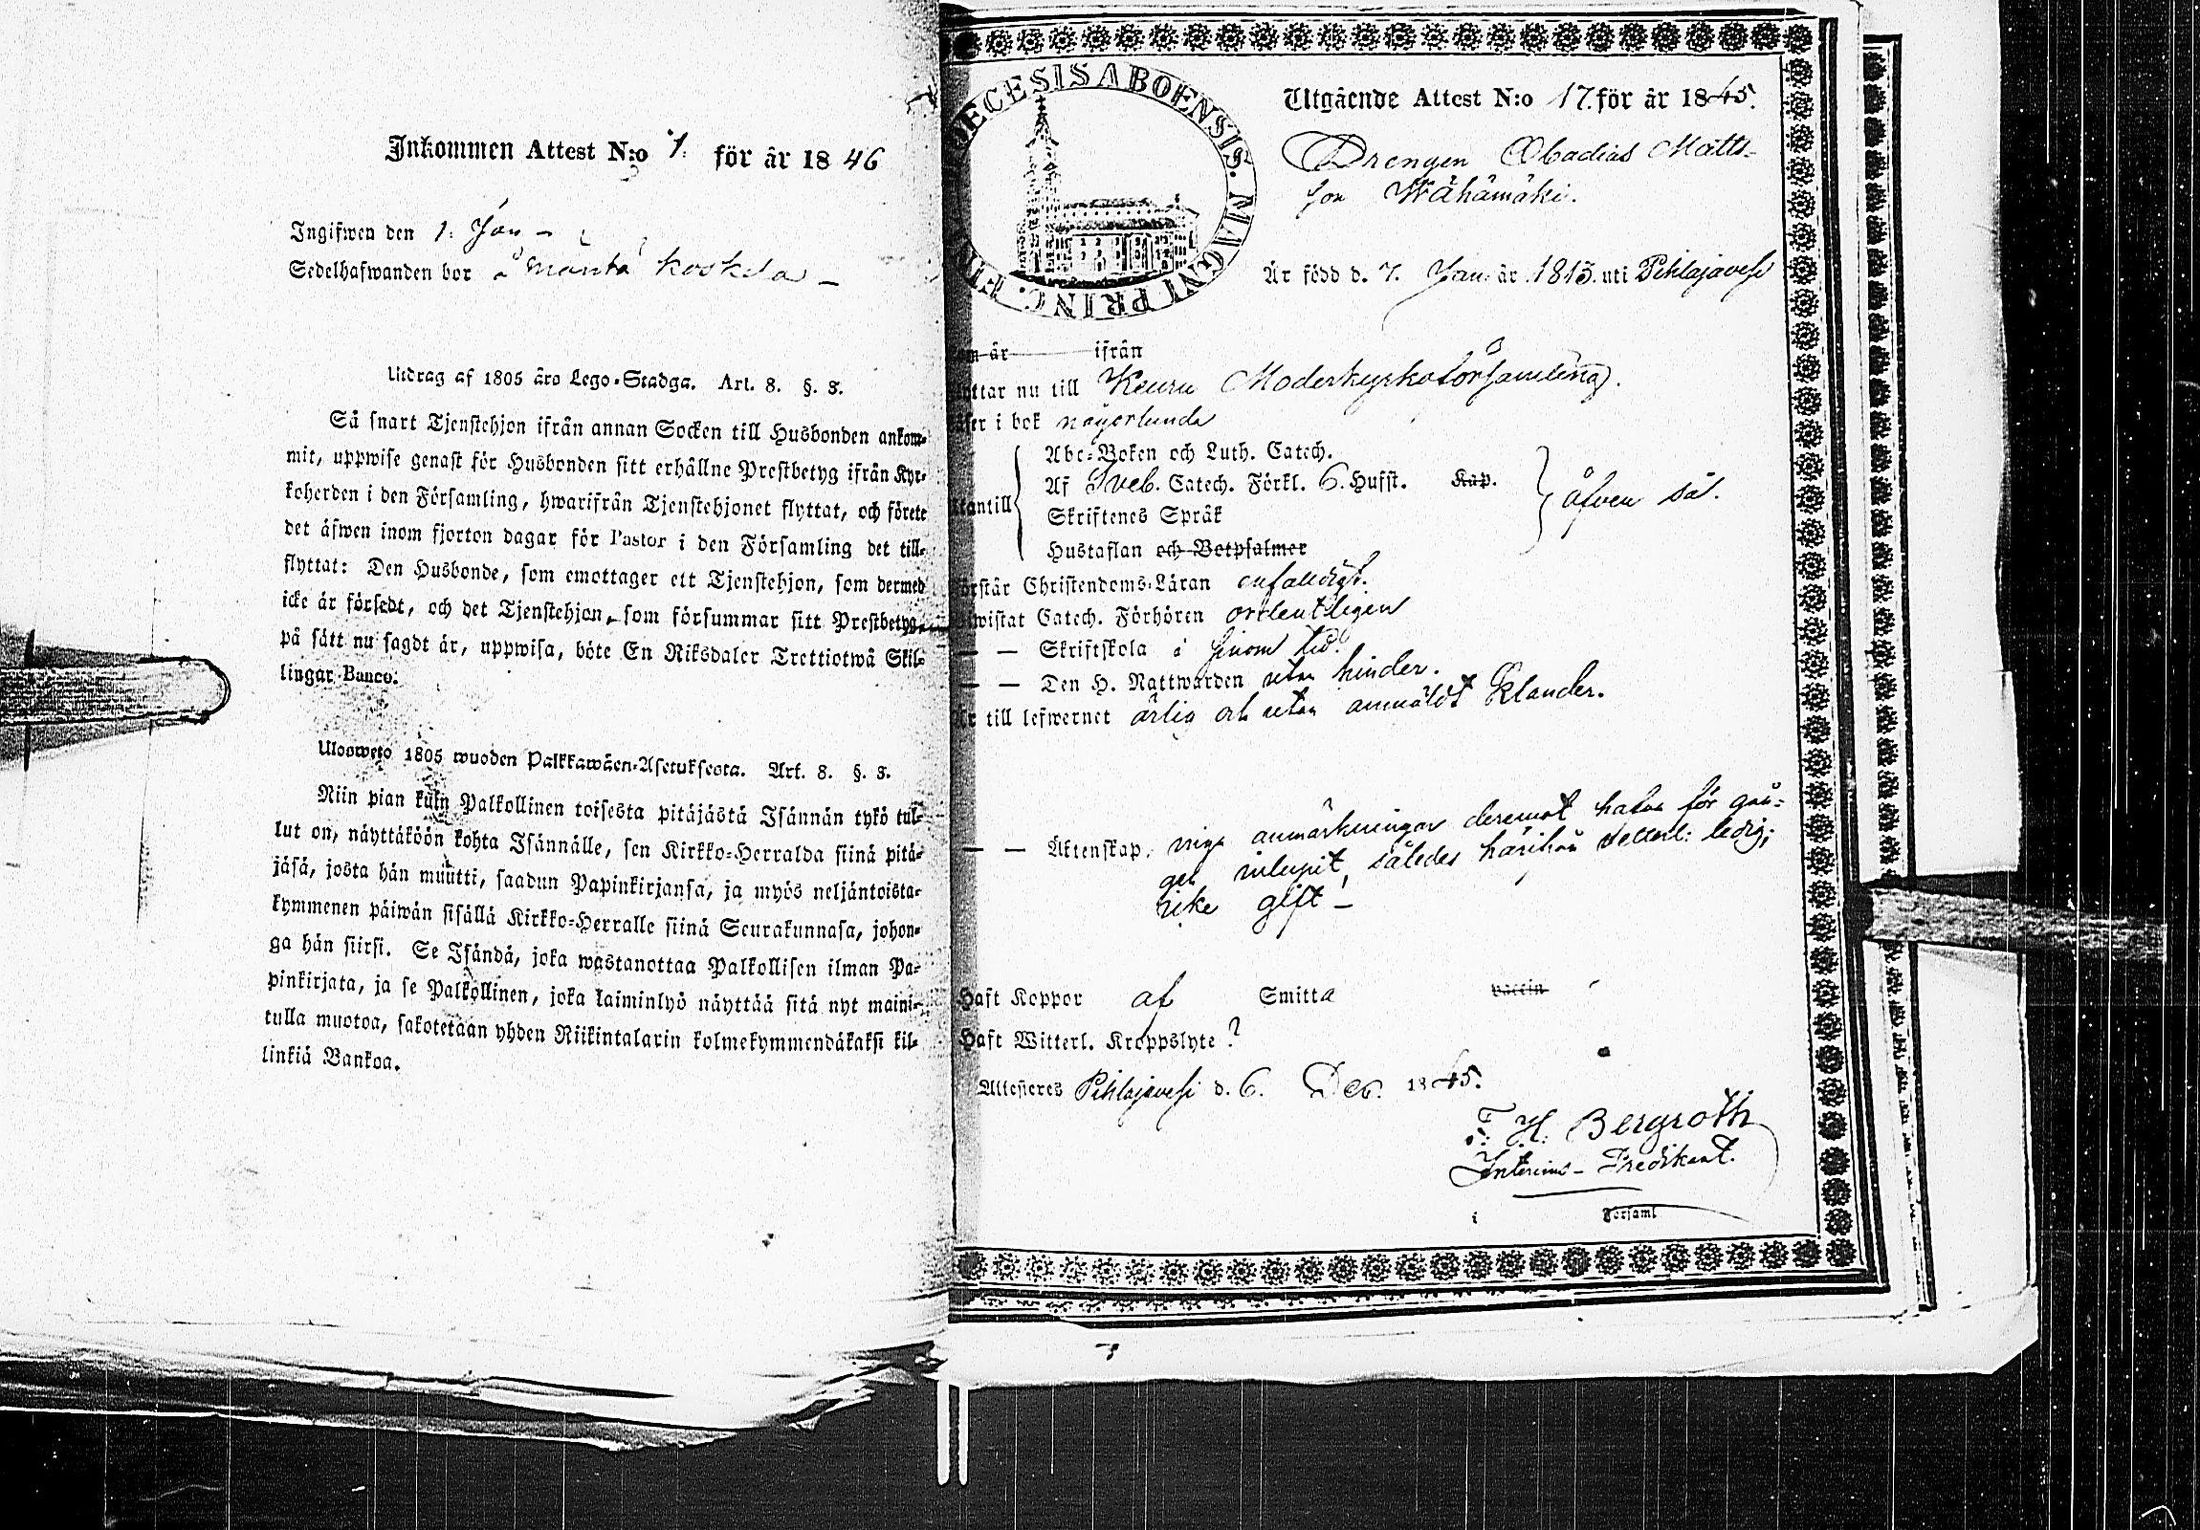 Inkommen Attest N:o 1. för år 1846
Ingifwen den 1. Jan -
Sedelhafwanden bor å Mänttä koskela -
Utdrag af 1805 års Lego-Stadga. Art. 8. §. 3.
Så snart Tjenstehjon ifrån annan Socken till Husbonden ankom-
mit, uppwise genast för Husbonden sitt erhållne Prestbetyg ifrån Kyr-
koherden i den Församling, hwarifrån Tjenstehjonet flyttat, och förete
det äfwen inom fjorton dagar för Pastor i den Församling det till-
flyttat: Den Husbonde, som emottager ett Tjenstehjon, som dermed
icke är försedt, och det Tjenstehjon, som försummar sitt Prestbetyg,
på sätt nu sagdt är, uppwisa, böte En Riksdaler Trettiotwå Skil-
lingar Banco.
Ulosweto 1805 wuoden Palkkawäen-Asetuksesta. Art. 8. §. 3.
Niin pian kuin Palkollinen toisesta pitäjästä Isännän tykö tul-
lut on, näyttäköön kohta Isännälle, sen Kirkko-Herralda siinä pitä-
jäsä, josta hän muutti, saadun Papinkirjansa, ja myös neljäntoista-
kymmenen päiwän sisällä Kirkko-Herralle siinä Seurakunnasa, johon-
ga hän siirsi. Se Isändä, joka wastanottaa Palkollisen ilman Pa-
pinkirjata, ja se Palkollinen, joka laiminlyö näyttää sitä nyt maini-
tulla muotoa, sakotetaan yhden Riikintalarin kolmekymmendäkaksi kil-
linkiä Bankoa.
DECESIS ABOENSIS. MAGNI PRINC.
Utgående Attest N:o 17. för år 1845.
Drengen Obadias Matts-
son Wähämäki.
Är född d. 7. Jan. år 1815. uti Pihlajavesi
om är ifrån
yttar nu till Keuru Moderkyrkoförsamling.
äser i bok någorlunda
Abc-Boken och Luth. Catech.
Af Sveb. Catech. Förkl. 6. Hufst. Kap.
tantill äfven så.
Skriftenes Språk
Hustaflan och Botpsalmer
örstår Christendoms-Läran enfaldigt.
iwistat Catech. Förhören ordentligen
— — Skriftskola i sinom tid.
— — Den H. Nattwarden utan hinder.
Är till lefwernet ärlig och utan anmäldt klander.
— — Äktenskap, inga anmärkningar deremot hafva för gån-
gen inlupit, således härifrån vetterl: ledig;
icke gift -
Haft Koppor af Smitta vaccin
Haft Witterl. Kroppslyte?
Attesteres Pihlajavesi d. 6. Dec. 1845.
F. H. Bergroth
Interims-Predikant.
i Församl